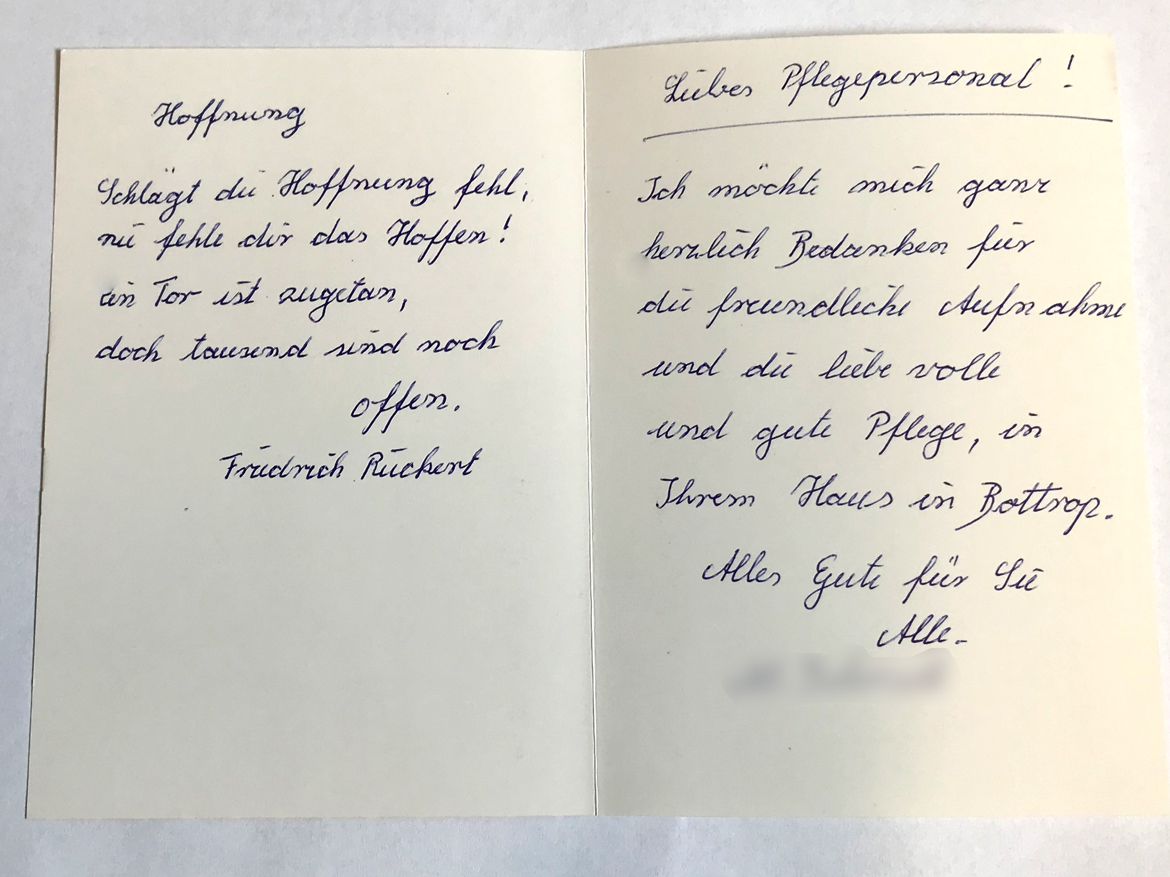 Hoffnung
Schlägt die Hoffnung fehl,
nie fehle dir das Hoffen!
ein Tor ist zugetan,
doch tausend sind noch
offen.
Friedrich Rückert
Liebes Pflegepersonal!
Ich möchte mich ganz
herzlich Bedanken für
die freundliche Aufnahme
und die liebe volle
und gute Pflege, in
Ihrem Haus in Bottrop.
Alles Gute für Sie
Alle.